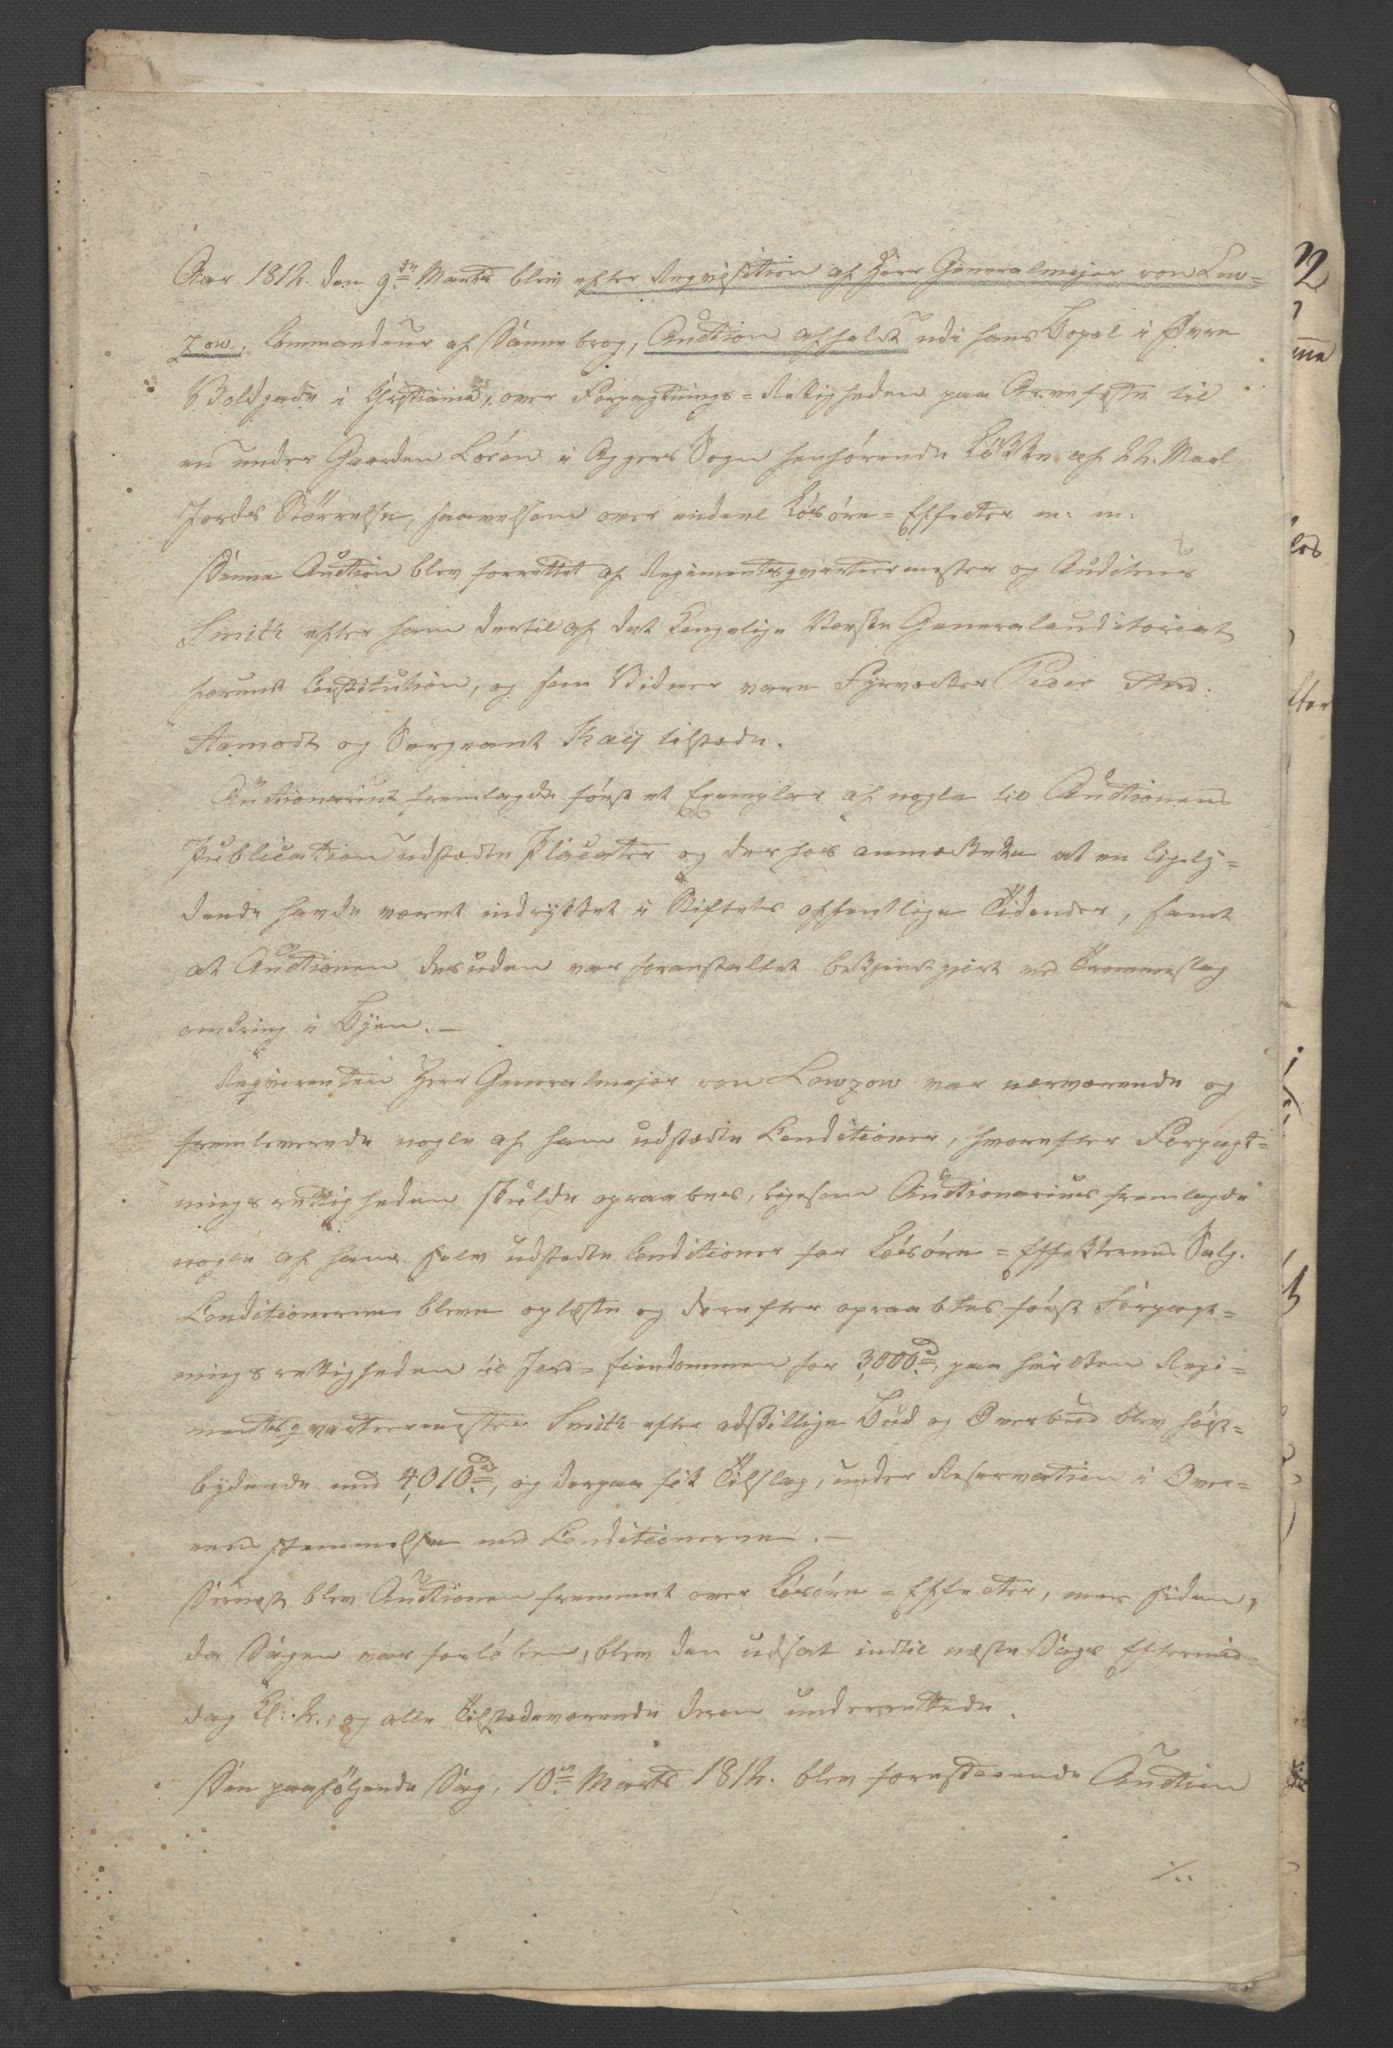 Aar 1812. den 9de Marts blev efter Reqvisition af Herr Generalmajor von Low=
zow, Commandeur af Dannebrog, Auction afholdt udi hans Bopæl i Øvre
Voldgade i Christiania, over Forpagtnings=Rettigheden paa Arvefæste til
en under Gaarden Løren i Aggers Sogn henhørende Løkke af 22. Maal
Jords Størrelse, saavelsom over endeel Løsøre=Effecter m: m:
Denne Auction blev forrettet af Regimentsqvarteermester og Auditeur
Smith efter ham dertil af det Kongelige Norske Generalauditoriat
forundt Constitution, og som Vidner vare Fyrværker Peder And:
Aamodt og Sergeant Kaej tilstæde.
Auctionarius fremlagde først et Exemplar af nogle til Auctionens
Publication udstædte Placater og derhos anmærkede at en ligely=
dende havde været indrykket i Stiftets offentlige Tidender, samt
at Auctionen desuden var foranstaltet bekjendtgjort ved Trommeslag
omkring i Byen. —
Reqvirenten Herr Generalmajor von Lowzow var nærværende og
fremleverede nogle af ham udstædte Conditioner, hvorefter Forpagt=
ningsrettigheden skulde opraabes, ligesom Auctionarius fremlagde
nogle af ham selv udstædte Conditioner for Løsøre=Effekternes Salg.
Conditionerne bleve oplæste og derefter opraabtes først Forpagt=
ningsrettigheden til Jord=Eiendommen for 3,000 rd, paa hvilken Regi=
mentsqvarteermester Smith efter adskillige Bud og Overbud blev høist=
bydende med 4,010 rd, og derpaa fik Tilslag, under Reservation i Over=
eensstemmelse med Conditionerne. —
Dernæst blev Auctionen fremmet over Løsøre=Effecter, men siden,
da Dagen var forløben, blev den udsat indtil næste Dags Eftermid=
dag Kl: 2., og alle Tilstædeværende derom underrettede.
Den paafølgende Dag, 10de Marts 1812. blev forestaaende Auction
./..